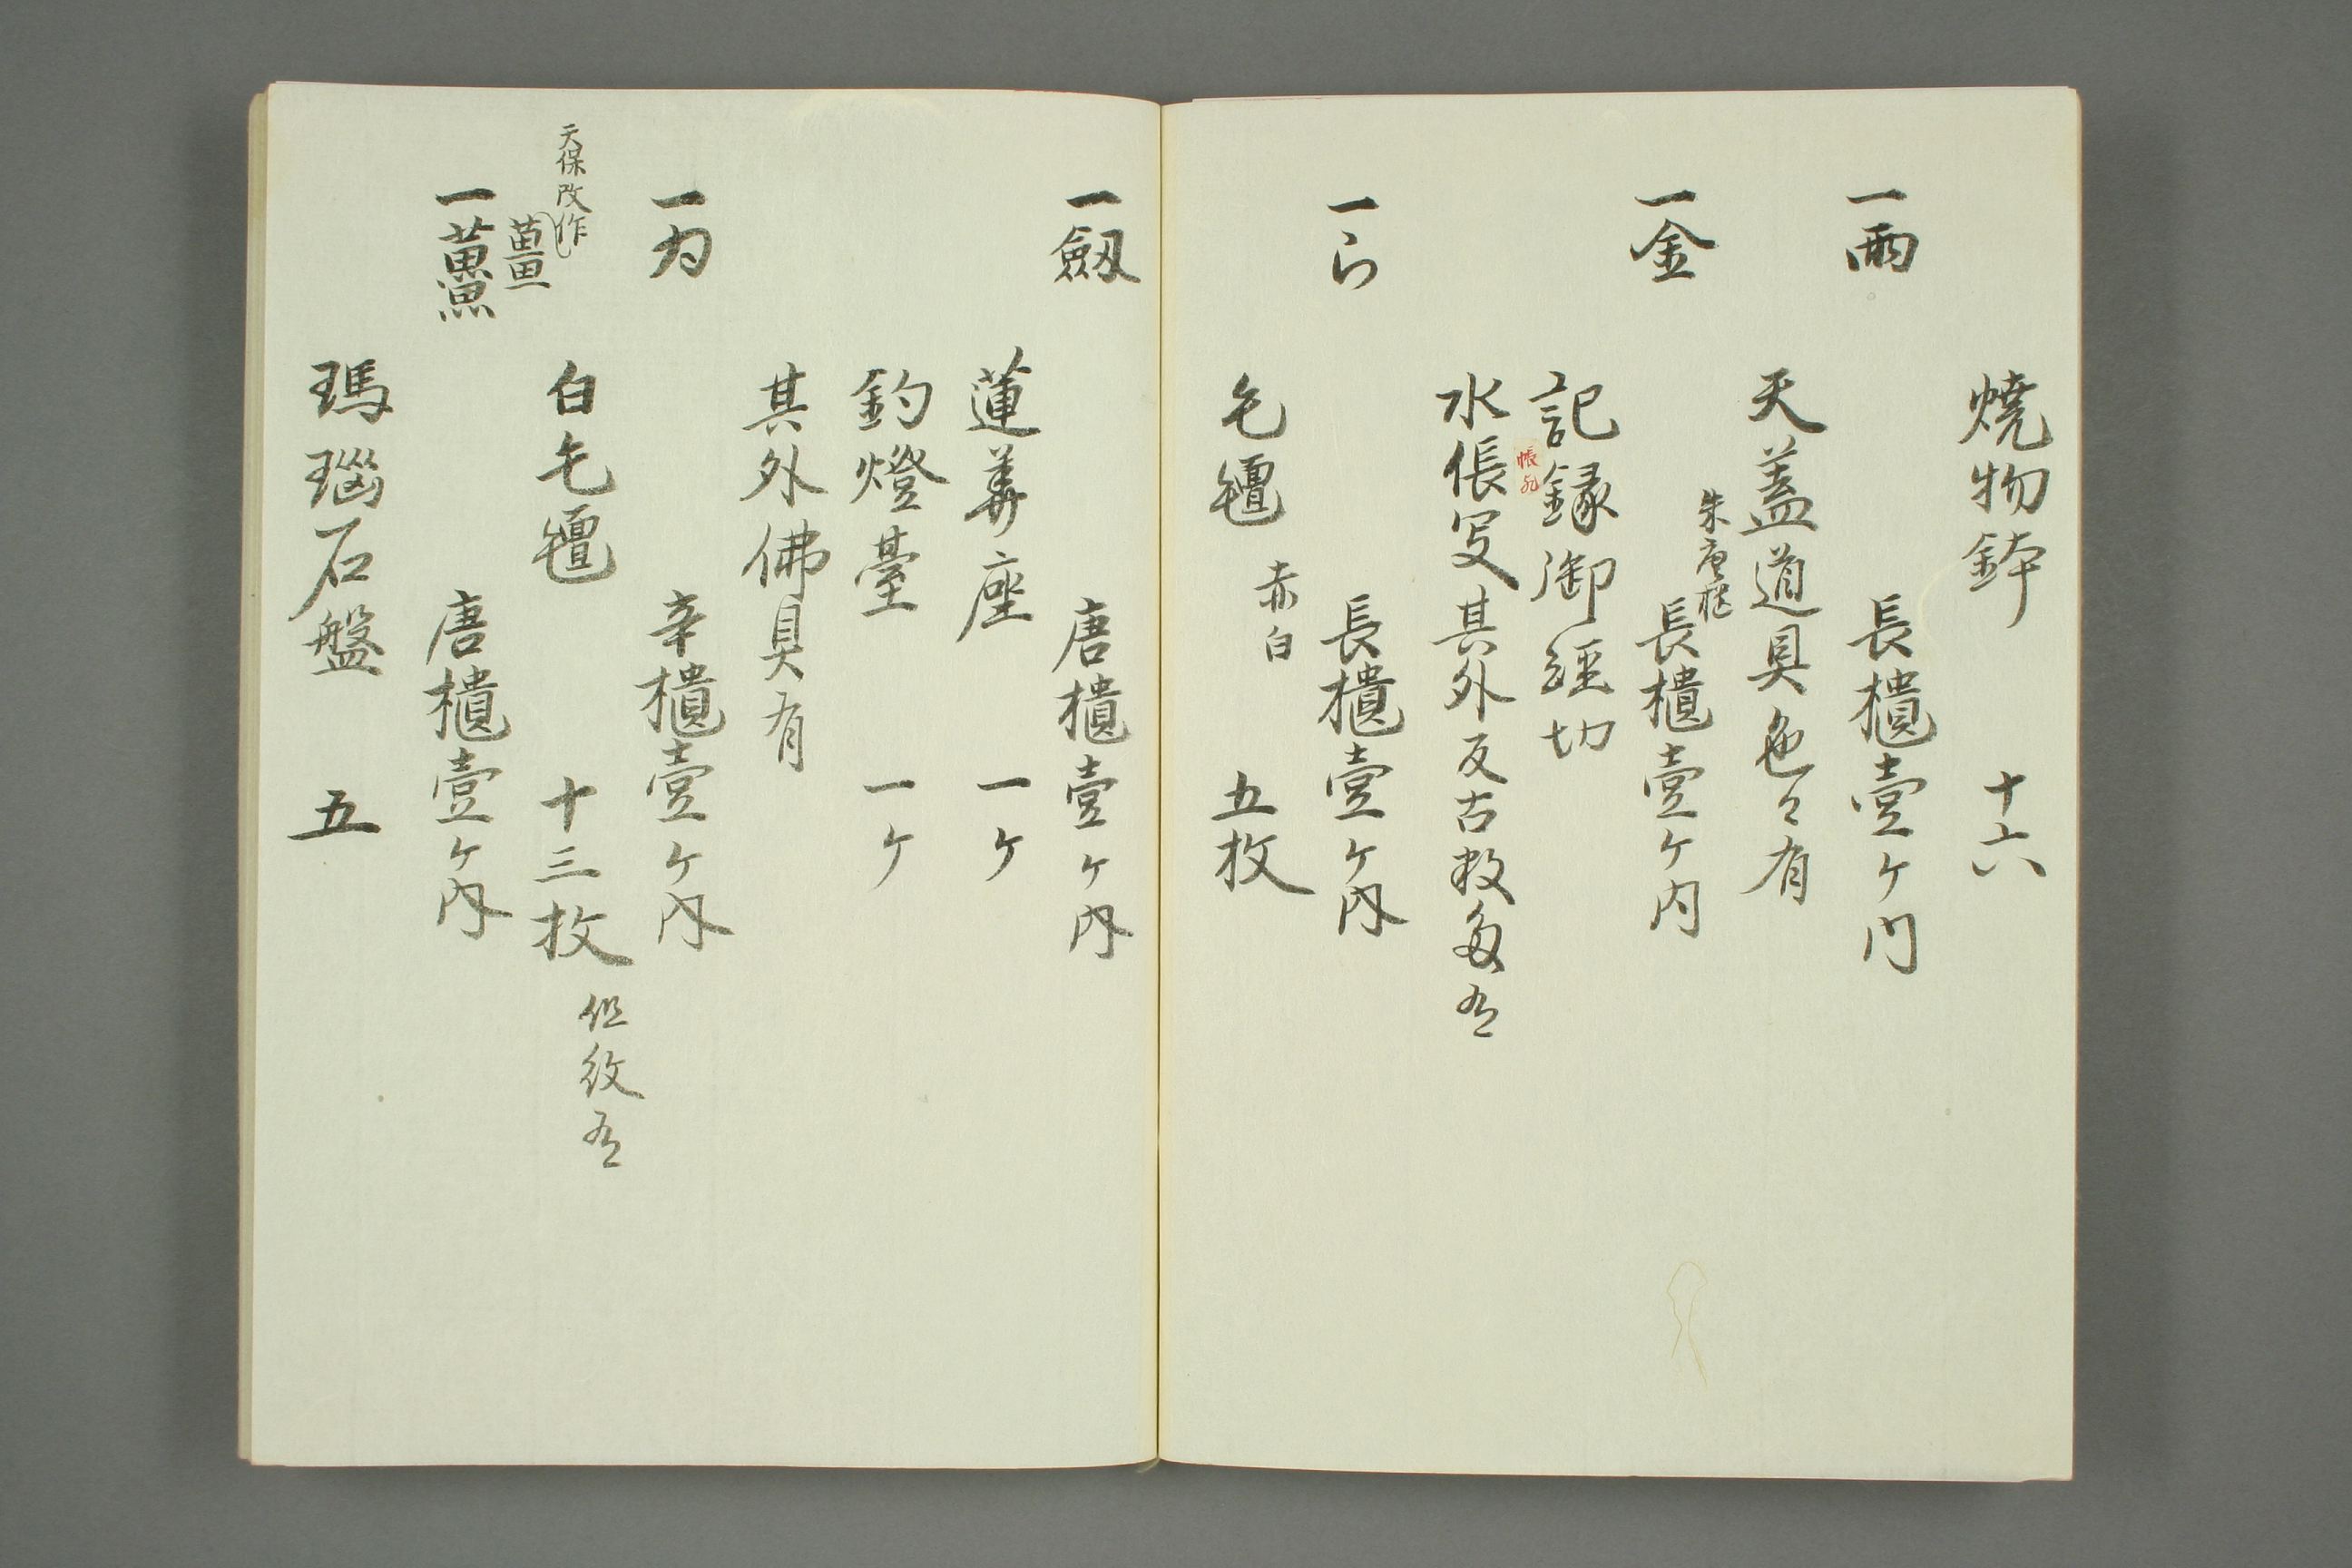 焼物鉢 十六
一雨 長櫃壹ヶ内
天蓋道具色々有
一金 長櫃壹ヶ内
朱唐櫃
記録御經切
水帳写其外反古数多有
一ら 長櫃壹ヶ内
毛氈 赤白 五枚
一劔 唐櫃壹ヶ内
蓮華座 一ケ
釣燈臺 一ケ
其外佛具有
一为 辛櫃壹ヶ内
白毛氈 十三枚 但紋有
天保改作
薑
一 唐櫃壹ヶ内
瑪瑙石盤 五